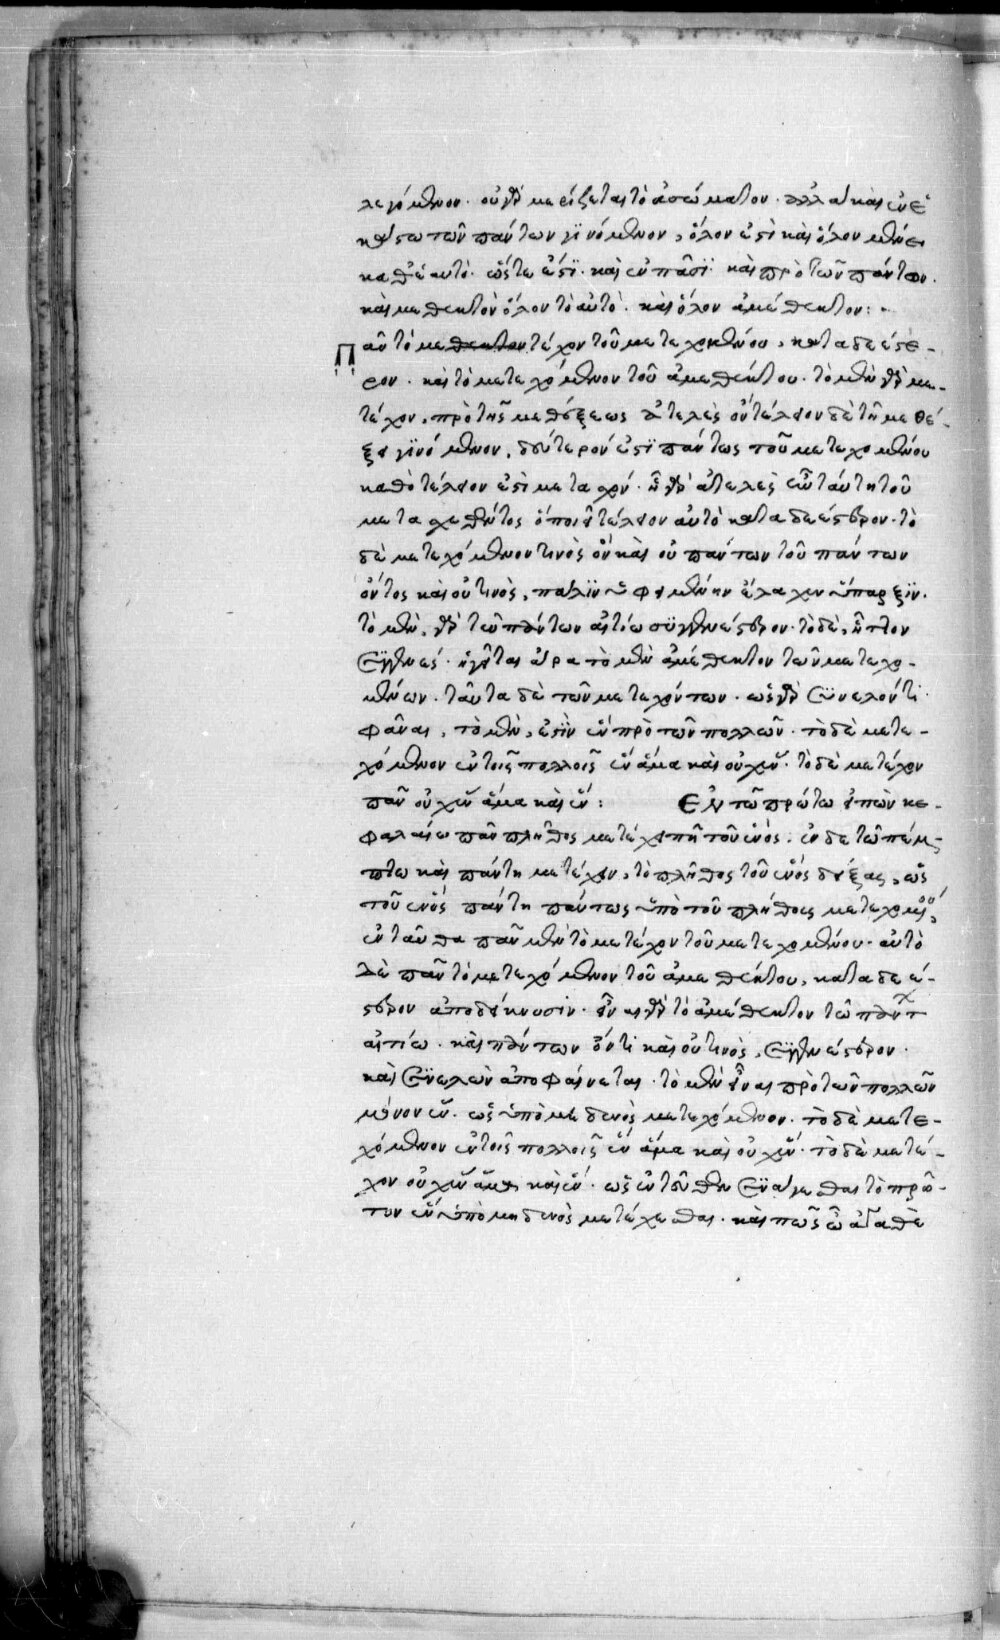 λεγόμενον. οὐ γὰρ μερίζεται τὸ ἀσώματον. ἀλλὰ καὶ ἐν ἑ
κάστω τῶν πάντων γϊνόμενον, ὅλον ἐστὶ καὶ ὅλον μένει
καθ' ἑαυτὸ. ὥστε ἐστῒ. καὶ ἐν πᾶσϊ. καὶ πρὸ τῶν πάντων.
καὶ μεθεκτὸν ὅλον τὸ αὐτὸ. καὶ ὅλον ἀμέθεκτον:
Πᾶν τὸ μετέχον τοῦ μετεχομένου, καταδεέστε-
ρον. καὶ τὸ μετεχόμενον τοῦ ἀμεθέκτου. τὸ μὲν γὰρ με-
τέχον, πρὸ τῆς μεθέξεως ἀτελὲς ὂν τέλειον δὲ τῆ μεθέ-
ξει γϊνόμενον, δεύτερόν ἐστϊ πάντως τοῦ μετεχομένου
καθὸ τέλειόν ἐστὶ μετασχόν. ἧ γὰρ ἀτελὲς ἦν ταύτη τοῦ
μετασχεθέντος ὃ ποιεῖ τέλειον αὐτὸ καταδεέστερον. τὸ
δὲ μετεχόμενον τινὸς ὂν καὶ οὐ πάντων τοῦ πάντων
ὄντος καὶ οὐ τινὸς, πάλϊν ὑφειμένην ἔλαχεν ὕπαρξϊν.
τὸ μὲν, γὰρ τῶ πάντων αἰτίω συγγενέστερον. τὸ δὲ, ἧττον
συγγενές. ἡγεῖται ἄρα τὸ μὲν ἀμέθεκτον τῶν μετεχο-
μένων. ταῦτα δὲ τῶν μετεχόντων. ὡς γὰρ συνελόντι
φάναι, τὸ μὲν, ἐστὶν ἓν πρὸ τῶν πολλῶν. τὸ δὲ μετε-
χόμενον ἐν τοῖς πολλοῖς ἓν ἅμα καὶ οὐχ ἕν. τὸ δὲ μετέχον
πᾶν οὐχ ἓν ἅμα καὶ ἕν: Ἐν τῶ πρώτω εἰπὼν κε-
φαλαίω πᾶν πλῆθος μετέχει πῆ τοῦ ἑνός. ἐν δὲ τῶ πέμ-
πτω καὶ πάντη μετέχειν, τὸ πλῆθος τοῦ ἑνὸς δείξας, ὡς
τοῦ ἑνὸς πάντη πάντως ὑπὸ τοῦ πλήθους μετεχομένου,
ἐνταῦθα πᾶν μὲν τὸ μετέχον τοῦ μετεχομένου. αὐτὸ
δὲ πᾶν τὸ μετεχόμενον τοῦ ἀμεθέκτου, καταδεέ-
στερον ἀποδείκνυσϊν. εἶναι γὰρ τὸ ἀμέθεκτον τῶ πάντων
αἰτίω. καὶ πάντων ὄντι καὶ οὐ τινὸς, συγγενέστερον.
καὶ συνελὼν ἀποφαίνεται. τὸ μὲν εἶναι πρὸ τῶν πολλῶν
μόνον ἕν. ὡς ὑπὸ μὴ δενὸς μετεχόμενον. τὸ δὲ μετε-
χόμενον ἐν τοῖς πολλοῖς ἓν ἅμα καὶ οὐχ ἕν. τὸ δὲ μετέ-
χον οὐχ ἓν ἅμα καὶ ἕν. ὡς ἐντεῦθεν συνάγεσθαι τὸ πρῶ-
τον ἓν ὑπὸ μηδενὸς μετέχεσθαι. καὶ πῶς ὦ ἀγαθὲ